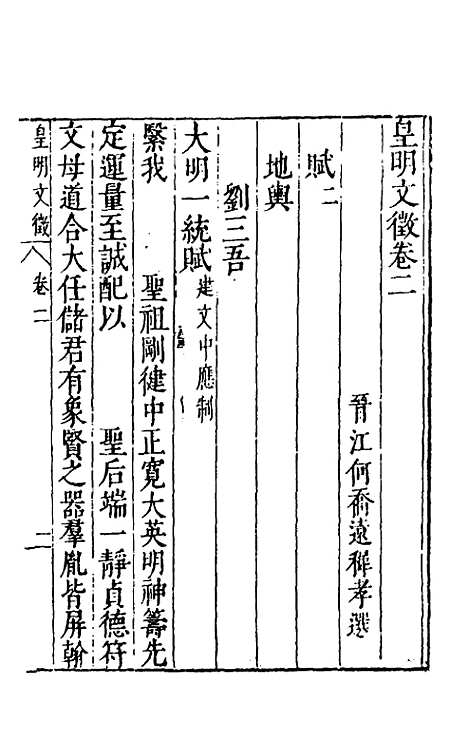 皇明文徵卷二
晉江何喬遠穉孝選
賦二
地輿
劉三吾
大明一統賦 建文中應制
繄我 聖祖剛健中正寬大英明神籌先
定運量至誠配以 聖后端一靜貞德符
文母道合大任儲君有象賢之器羣胤皆屏翰
皇明文徵 卷二 二